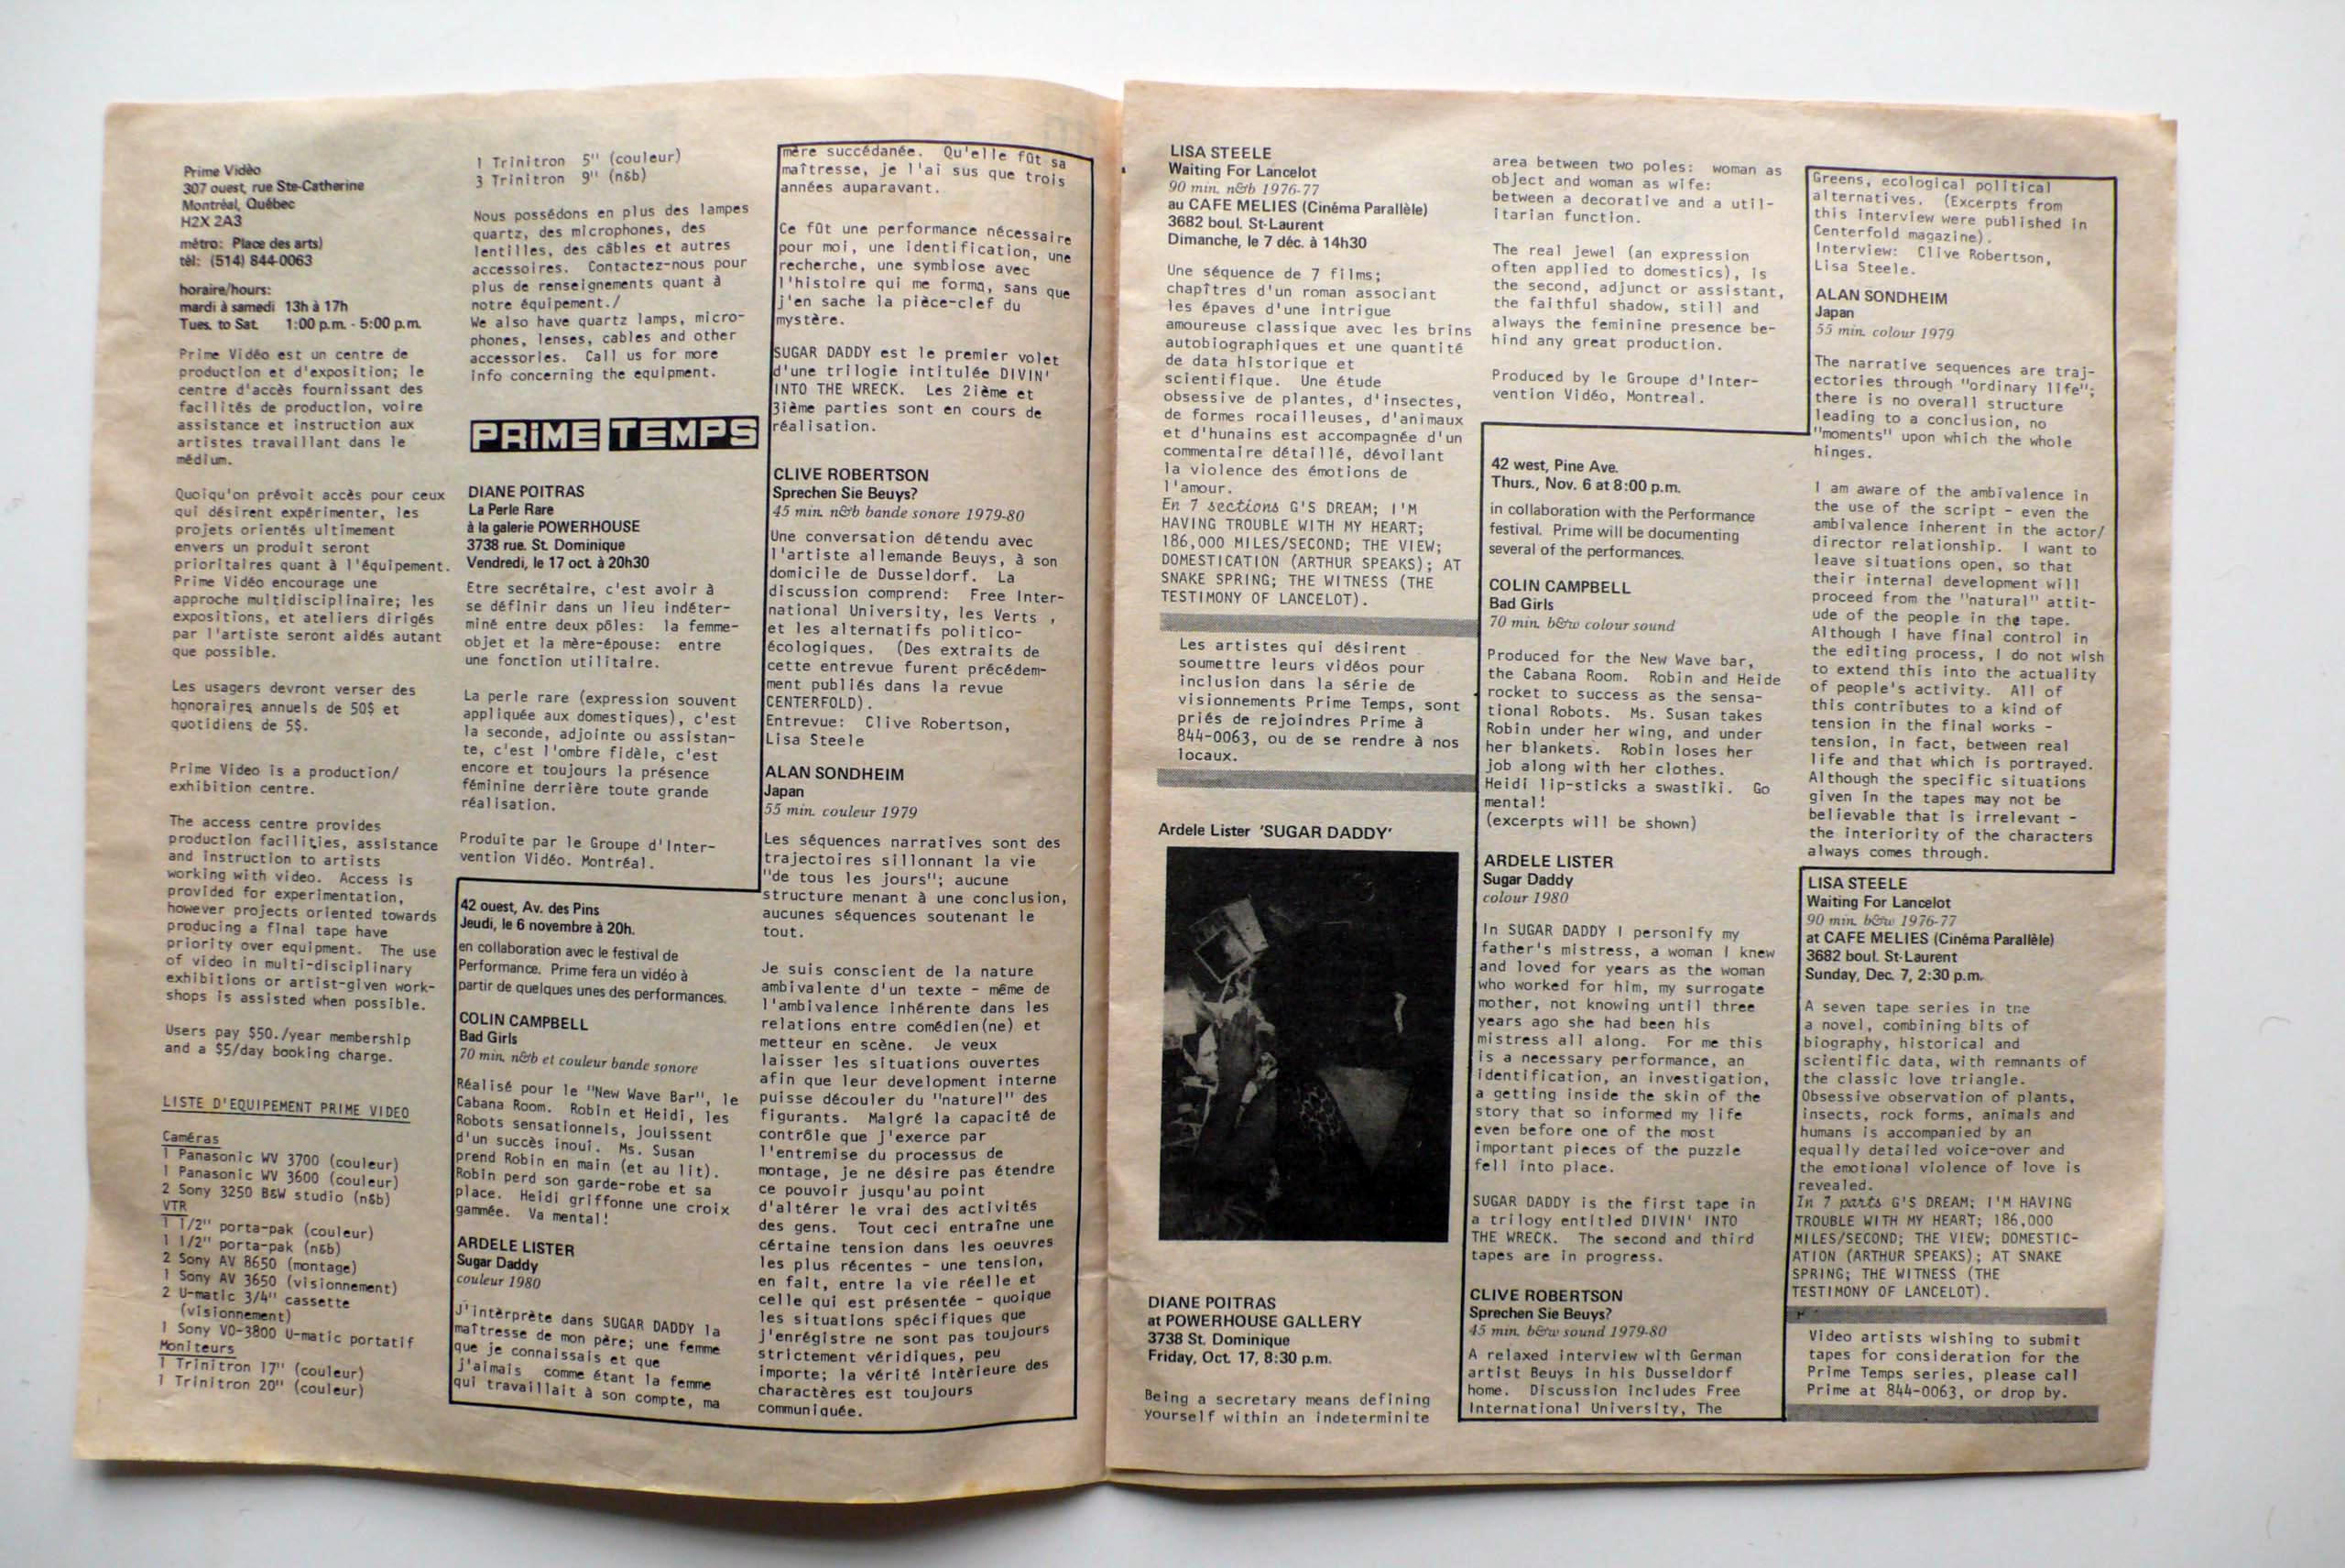 Prime Vidèo
307 ouest, rue Ste-Catherine
Montréal, Québec
H2X 2A3
métro: Place des arts)
tèl: (514) 844-0063
horaire/hours:
mardi à samedi 13h à 17h
Tues. to Sat. 1:00 p.m. - 5:00 p.m.
Prime Vidéo est un centre de
production et d'exposition; le
centre d'accès fournissant des
facilités de production, voire
assistance et instruction aux
artistes travaillant dans le
médium.
Quoiqu'on prévoit accès pour ceux
qui désirent expérimenter, les
projets orientés ultimement
envers un produit seront
prioritaires quant à l'équipement.
Prime Vidéo encourage une
approche multidisciplinaire; les
expositions, et ateliers dirigés
par l'artiste seront aidés autant
que possible.
Les usagers devront verser des
honoraires annuels de 50$ et
quotidiens de 5$.
Prime Video is a production/
exhibition centre.
The access centre provides
production facilities, assistance
and instruction to artists
working with video. Access is
provided for experimentation,
however projects oriented towards
producing a final tape have
priority over equipment. The use
of video in multi-disciplinary
exhibitions or artist-given work-
shops is assisted when possible.
Users pay $50./year membership
and a $5/day booking charge.
LISTE D'EQUIPEMENT PRIME VIDEO
Caméras
1 Panasonic WV 3700 (couleur)
1 Panasonic WV 3600 (couleur)
2 Sony 3250 B&W studio (n&b)
VTR
1 1/2" porta-pak (couleur)
1 1/2" porta-pak (n&b)
2 Sony AV 8650 (montage)
1 Sony AV 3650 (visionnement)
2 U-matic 3/4" cassette
(visionnement)
1 Sony VO-3800 U-matic portatif
Moniteurs
1 Trinitron 17" (couleur)
1 Trinitron 20" (couleur)
1 Trinitron 5" (couleur)
3 Trinitron 9" (n&b)
Nous possédons en plus des lampes
quartz, des microphones, des
lentilles, des câbles et autres
accessoires. Contactez-nous pour
plus de renseignements quant à
notre équipement./
We also have quartz lamps, micro-
phones, lenses, cables and other
accessories. Call us for more
info concerning the equipment.
PRIME TEMPS
DIANE POITRAS
La Perle Rare
à la galerie POWERHOUSE
3738 rue. St. Dominique
Vendredi, le 17 oct. à 20h30
Etre secrétaire, c'est avoir à
se définir dans un lieu indéter-
miné entre deux pôles: la femme-
objet et la mère-épouse: entre
une fonction utilitaire.
La perle rare (expression souvent
appliquée aux domestiques), c'est
la seconde, adjointe ou assistan-
te, c'est l'ombre fidèle, c'est
encore et toujours la présence
féminine derrière toute grande
réalisation.
Produite par le Groupe d'Inter-
vention Vidéo. Montréal.
42 ouest, Av. des Pins
Jeudi, le 6 novembre à 20h.
en collaboration avec le festival de
Performance. Prime fera un vidéo à
partir de quelques unes des performances.
COLIN CAMPBELL
Bad Girls
70 min. n&b et couleur bande sonore
Réalisé pour le "New Wave Bar", le
Cabana Room. Robin et Heidi, les
Robots sensationnels, jouissent
d'un succès inoui. Ms. Susan
prend Robin en main (et au lit).
Robin perd son garde-robe et sa
place. Heidi griffonne une croix
gammée. Va mental!
ARDELE LISTER
Sugar Daddy
couleur 1980
J'intèrprète dans SUGAR DADDY la
maîtresse de mon père; une femme
que je connaissais et que
j'aimais comme étant la femme
qui travaillait à son compte, ma
mère succédanée. Qu'elle fût sa
maîtresse, je l'ai sus que trois
années auparavant.
Ce fût une performance nécessaire
pour moi, une identification, une
recherche, une symbiose avec
l'histoire qui me forma, sans que
j'en sache la pièce-clef du
mystère.
SUGAR DADDY est le premier volet
d'une trilogie intitulée DIVIN'
INTO THE WRECK. Les 2ième et
3ième parties sont en cours de
réalisation.
CLIVE ROBERTSON
Sprechen Sie Beuys?
45 min. n&b bande sonore 1979-80
Une conversation détendu avec
l'artiste allemande Beuys, à son
domicile de Dusseldorf. La
discussion comprend: Free Inter-
national University, les Verts ,
et les alternatifs politico-
écologiques. (Des extraits de
cette entrevue furent précédem-
ment publiés dans la revue
CENTERFOLD).
Entrevue: Clive Robertson,
Lisa Steele
ALAN SONDHEIM
Japan
55 min. couleur 1979
Les séquences narratives sont des
trajectoires sillonnant la vie
"de tous les jours"; aucune
structure menant à une conclusion,
aucunes séquences soutenant le
tout.
Je suis conscient de la nature
ambivalente d'un texte - même de
l'ambivalence inhérente dans les
relations entre comédien(ne) et
metteur en scène. Je veux
laisser les situations ouvertes
afin que leur development interne
puisse découler du "naturel" des
figurants. Malgré la capacité de
contrôle que j'exerce par
l'entremise du processus de
montage, je ne désire pas étendre
ce pouvoir jusqu'au point
d'altérer le vrai des activités
des gens. Tout ceci entraîne une
cértaine tension dans les oeuvres
les plus récentes - une tension,
en fait, entre la vie réelle et
celle qui est présentée - quoique
les situations spécifiques que
j'enrégistre ne sont pas toujours
strictement véridiques, peu
importe; la vérité intèrieure des
charactères est toujours
communiquée.
LISA STEELE
Waiting For Lancelot
90 min. n&b 1976-77
au CAFE MELIES (Cinéma Parallèle)
3682 boul. St-Laurent
Dimanche, le 7 déc. à 14h30
Une séquence de 7 films;
chapîtres d'un roman associant
les épaves d'une intrigue
amoureuse classique avec les brins
autobiographiques et une quantité
de data historique et
scientifique. Une étude
obsessive de plantes, d'insectes,
de formes rocailleuses, d'animaux
et d'hunains est accompagnée d'un
commentaire détaillé, dévoilant
la violence des émotions de
l'amour.
En 7 sections G'S DREAM; I'M
HAVING TROUBLE WITH MY HEART;
186,000 MILES/SECOND; THE VIEW;
DOMESTICATION (ARTHUR SPEAKS); AT
SNAKE SPRING; THE WITNESS (THE
TESTIMONY OF LANCELOT).
Les artistes qui désirent
soumettre leurs vidéos pour
inclusion dans la série de
visionnements Prime Temps, sont
priés de rejoindres Prime à
844-0063, ou de se rendre à nos
locaux.
Ardele Lister 'SUGAR DADDY'
DIANE POITRAS
at POWERHOUSE GALLERY
3738 St. Dominique
Friday, Oct. 17, 8:30 p.m.
Being a secretary means defining
yourself within an indeterminite
area between two poles: woman as
object and woman as wife:
between a decorative and a util-
itarian function.
The real jewel (an expression
often applied to domestics), is
the second, adjunct or assistant,
the faithful shadow, still and
always the feminine presence be-
hind any great production.
Produced by le Groupe d'Inter-
vention Vidéo, Montreal.
42 west, Pine Ave.
Thurs., Nov. 6 at 8:00 p.m.
in collaboration with the Performance
festival. Prime will be documenting
several of the performances.
COLIN CAMPBELL
Bad Girls
70 min. b&w colour sound
Produced for the New Wave bar,
the Cabana Room. Robin and Heide
rocket to success as the sensa-
tional Robots. Ms. Susan takes
Robin under her wing, and under
her blankets. Robin loses her
job along with her clothes.
Heidi lip-sticks a swastiki. Go
mental!
(excerpts will be shown)
ARDELE LISTER
Sugar Daddy
colour 1980
In SUGAR DADDY I personify my
father's mistress, a woman I knew
and loved for years as the woman
who worked for him, my surrogate
mother, not knowing until three
years ago she had been his
mistress all along. For me this
is a necessary performance, an
identification, an investigation,
a getting inside the skin of the
story that so informed my life
even before one of the most
important pieces of the puzzle
fell into place.
SUGAR DADDY is the first tape in
a trilogy entitled DIVIN' INTO
THE WRECK. The second and third
tapes are in progress.
CLIVE ROBERTSON
Sprechen Sie Beuys?
45 min. b&w sound 1979-80
A relaxed interview with German
artist Beuys in his Dusseldorf
home. Discussion includes Free
International University, The
Greens, ecological political
alternatives. (Excerpts from
this interview were published in
Centerfold magazine).
Interview: Clive Robertson,
Lisa Steele.
ALAN SONDHEIM
Japan
55 min. colour 1979
The narrative sequences are traj-
ectories through "ordinary life";
there is no overall structure
leading to a conclusion, no
"moments" upon which the whole
hinges.
I am aware of the ambivalence in
the use of the script - even the
ambivalence inherent in the actor/
director relationship. I want to
leave situations open, so that
their internal development will
proceed from the "natural" attit-
ude of the people in the tape.
Although I have final control in
the editing process, I do not wish
to extend this into the actuality
of people's activity. All of
this contributes to a kind of
tension in the final works -
tension, in fact, between real
life and that which is portrayed.
Although the specific situations
given in the tapes may not be
believable that is irrelevant -
the interiority of the characters
always comes through.
LISA STEELE
Waiting For Lancelot
90 min. b&w 1976-77
at CAFE MELIES (Cinéma Parallèle)
3682 boul. St-Laurent
Sunday, Dec. 7, 2:30 p.m.
A seven tape series in the
a novel, combining bits of
biography, historical and
scientific data, with remnants of
the classic love triangle.
Obsessive observation of plants,
insects, rock forms, animals and
humans is accompanied by an
equally detailed voice-over and
the emotional violence of love is
revealed.
In 7 parts G'S DREAM; I'M HAVING
TROUBLE WITH MY HEART; 186,000
MILES/SECOND; THE VIEW; DOMESTIC-
ATION (ARTHUR SPEAKS); AT SNAKE
SPRING; THE WITNESS (THE
TESTIMONY OF LANCELOT).
Video artists wishing to submit
tapes for consideration for the
Prime Temps series, please call
Prime at 844-0063, or drop by.